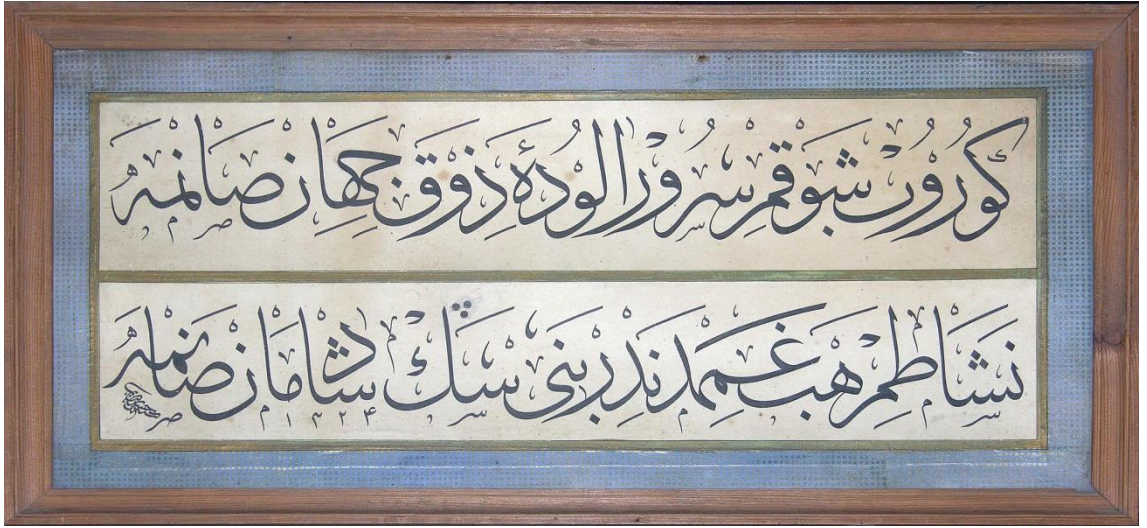 كوروب شوقم سرور الودۀ ذوق جهان صانمه
نشاطم هب غممدندر بنى سڭ شادمان صانمه
١٣٢٤